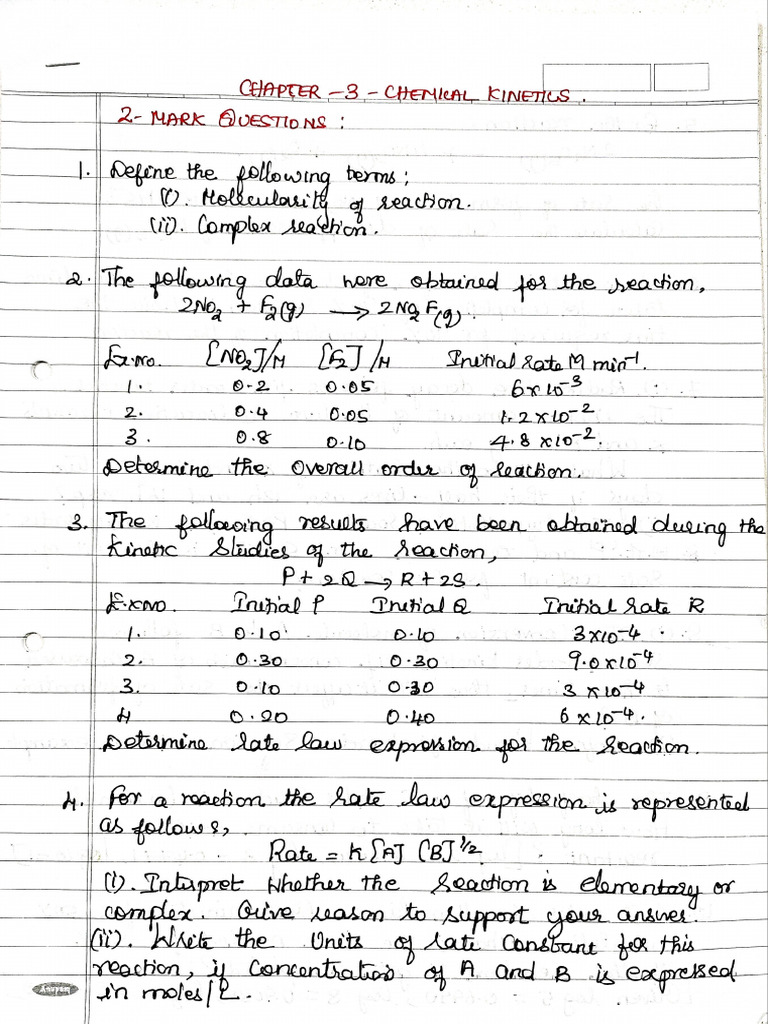 CHAPTER - 3 - CHEMICAL KINETICS.
2- MARK QUESTIONS:
1. Define the following terms:
(i). Molecularity of reaction.
(ii). Complex reaction.
2. The following data were obtained for the reaction,
2NO2 + F2(g) → 2NO2F(g).
Ex.No. [NO2]/M [F2]/M Initial rate M min-1.
1. 0.2 0.05 6x10-3
2. 0.4 0.05 1.2x10-2
3. 0.8 0.10 4.8x10-2.
Determine the overall order of reaction.
3. The following results have been obtained during the
Kinetic Studies of the reaction,
P+2Q → R+2S.
Ex.NO. Initial P Initial Q Initial rate R
1. 0.10 0.10 3x10-4.
2. 0.30 0.30 9.0x10-4
3. 0.10 0.30 3x10-4
4 0.20 0.40 6x10-4.
Determine rate law expression for the reaction.
4. For a reaction the rate law expression is represented
as follows,
Rate = K[A] [B]1/2
(i). Interpret whether the reaction is elementary or
complex. Give reason to support your answer.
(ii). Write the Units of rate constant for this
reaction, if concentration of A and B is expressed
in moles/L.